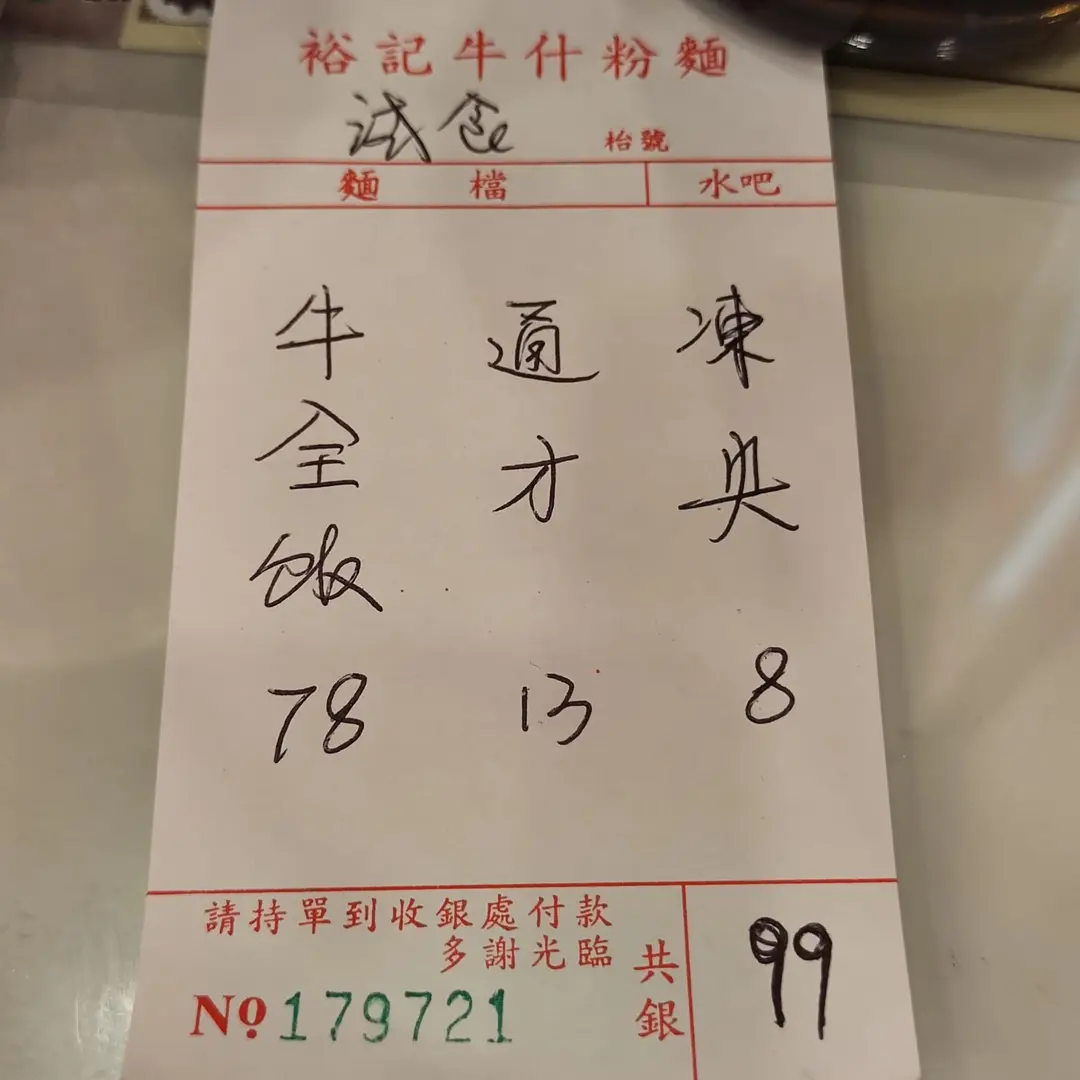 裕記牛什粉麵
枱號
麵檔
水吧
牛全飯
78
通才
13
凍央
8
請持單到收銀處付款
多謝光臨
共銀
99
No 179721